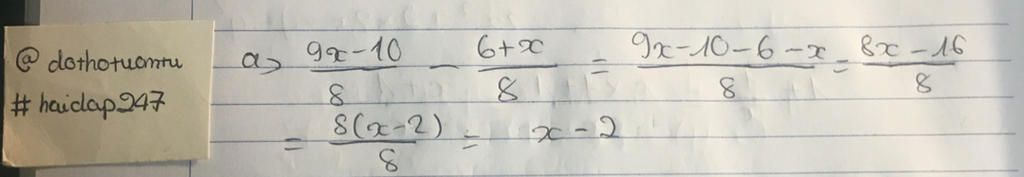 @ dothotuantu
# haidap247
a> \frac{9x-10}{8} - \frac{6+x}{8} = \frac{9x-10-6-x}{8} = \frac{8x-16}{8}
= \frac{8(x-2)}{8} = x-2